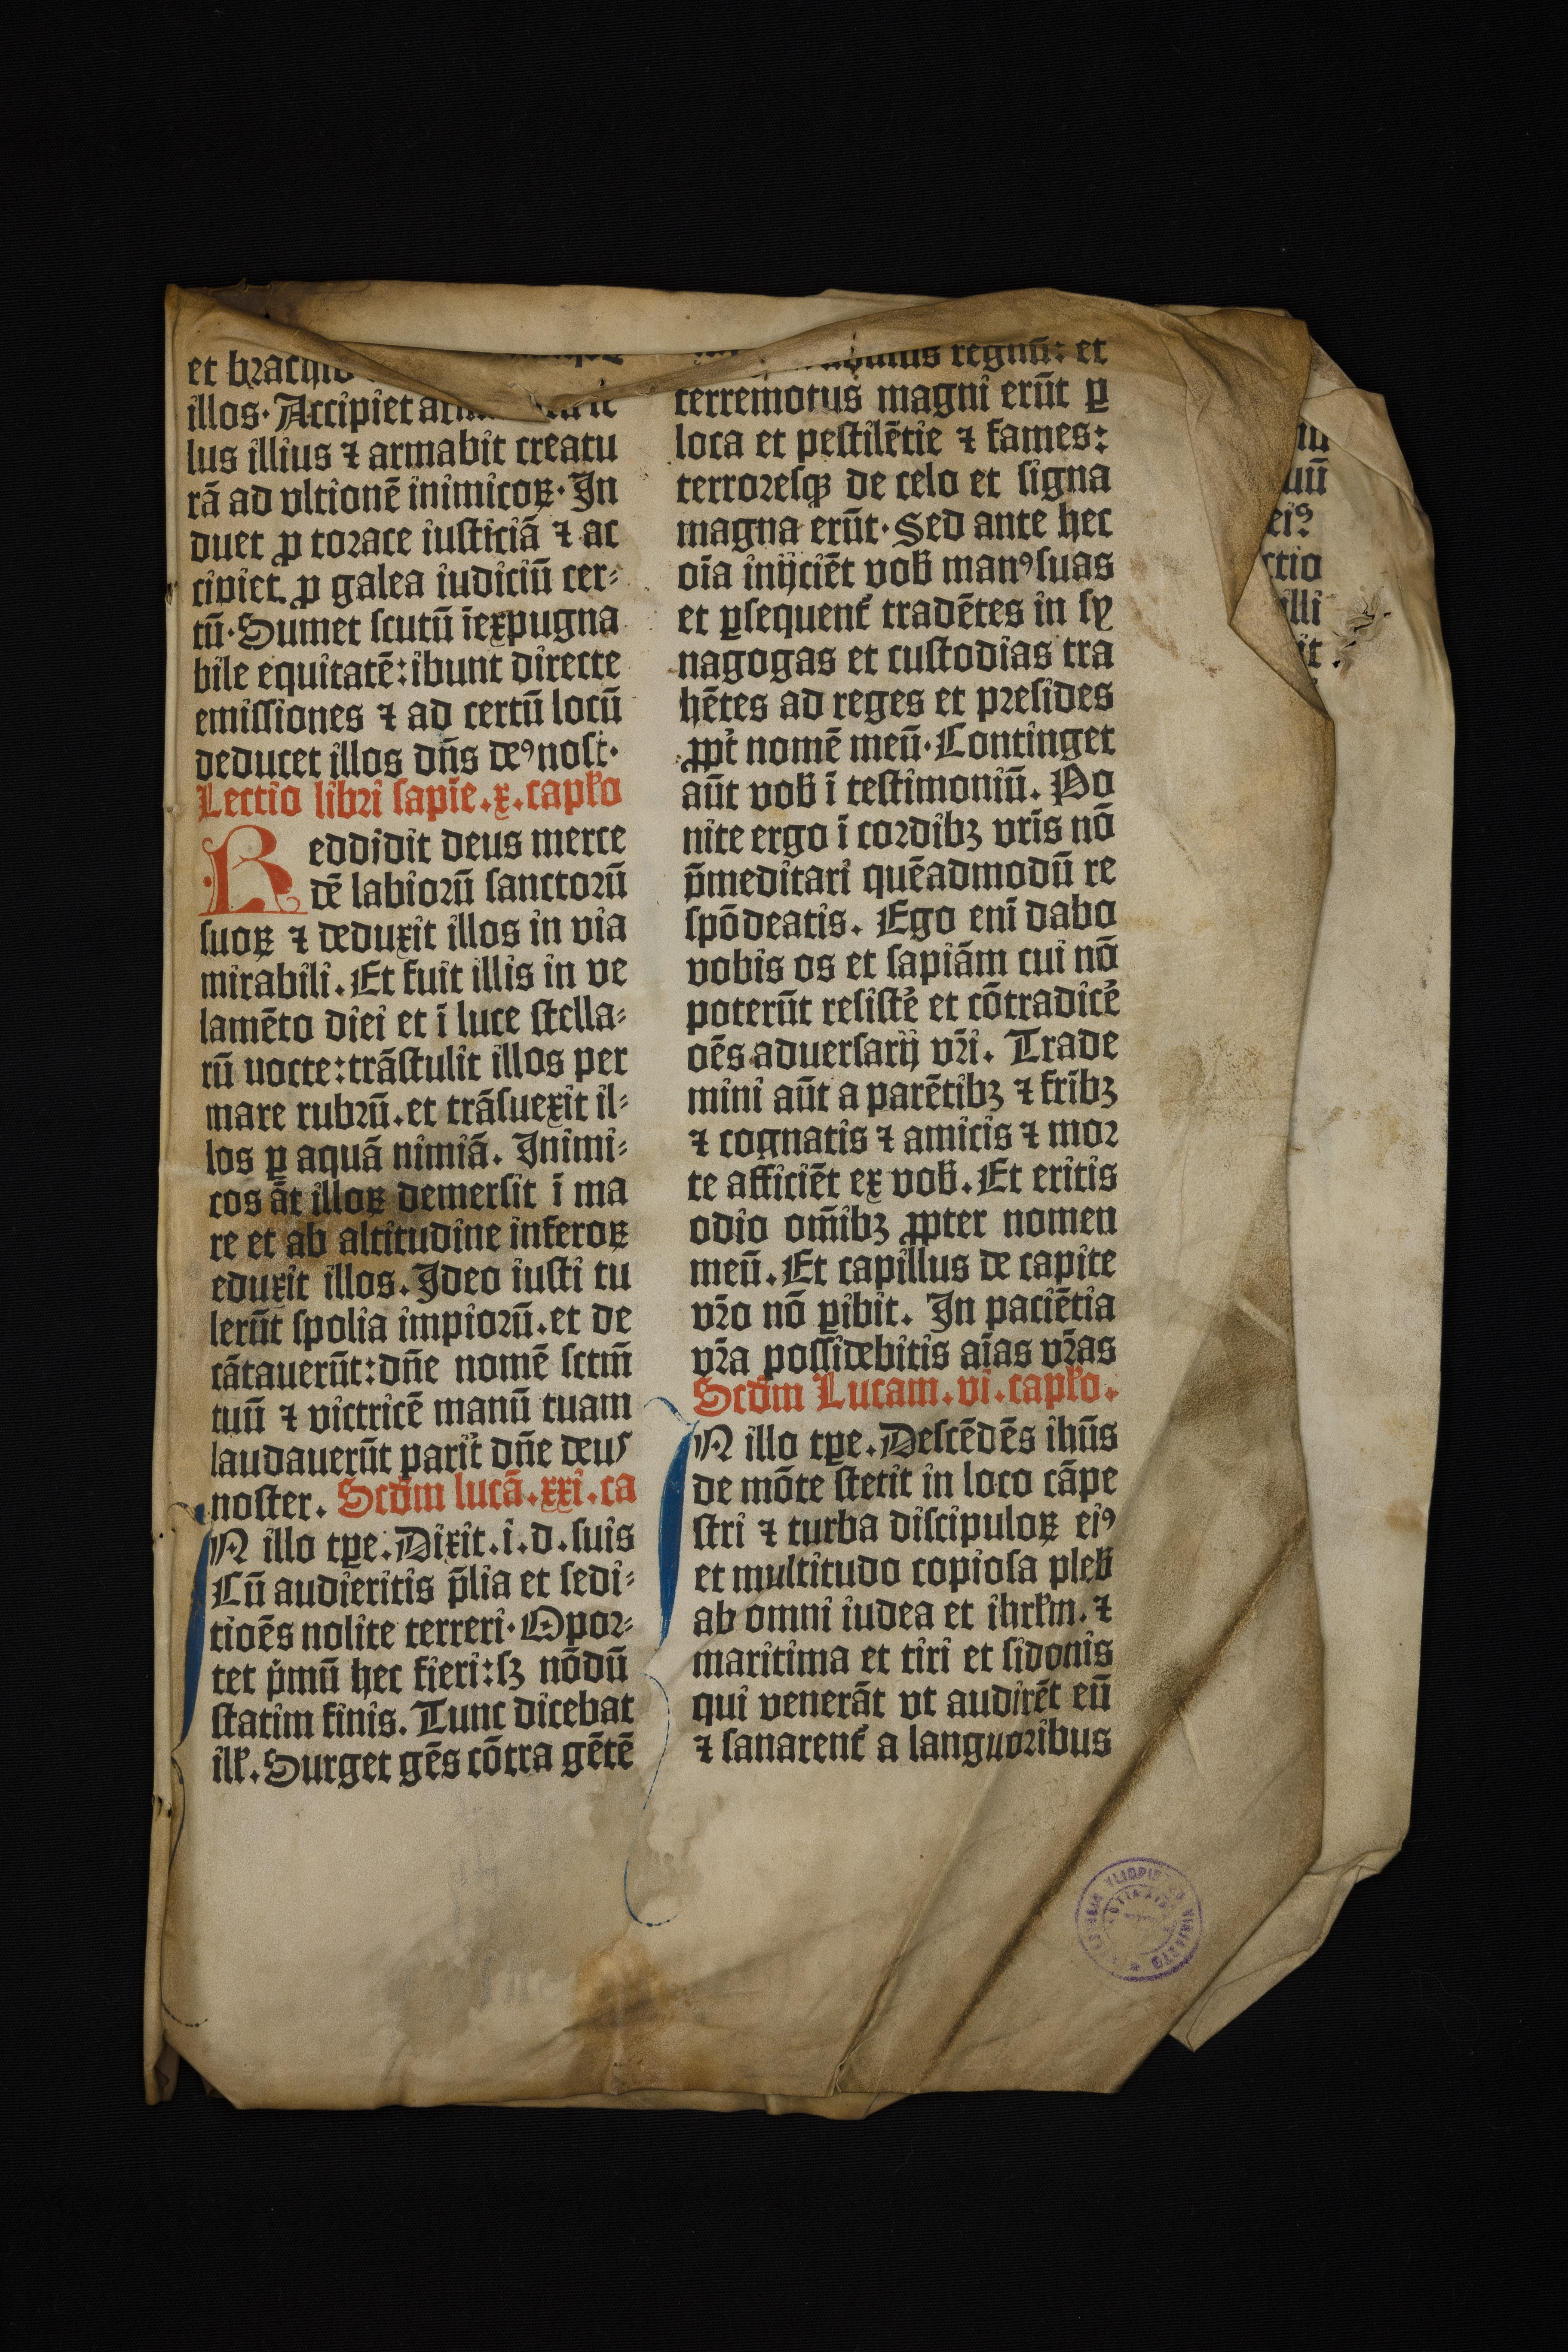 et brachio
illos· Accipiet
lus illius ⁊ armabit creatu
rā ad vltionē inimicoꝝ· In
duet ꝓ torace iusticiā ⁊ ac
cipiet ꝓ galea iudiciū cer⸗
tū· Sumet scutū īexpugna
bile equitatē: ibunt directe
emissiones ⁊ ad certū locū
deducet illos dn̄s deꝰ nost·
Lectio libri sapīe.x.capľo
Reddidit deus merce
dē labiorū sanctorū
suoꝝ ⁊ deduxit illos in via
mirabili. Et fuit illis in ve
lamēto diei et ī luce stella⸗
rū nocte: trāstulit illos per
mare rubrū. et trāsuexit il⸗
los ꝑ aquā nimiā. Inimi⸗
cos āt illoꝝ demersit ī ma
re et ab altitudine inferoꝝ
eduxit illos. Ideo iusti tu
lerūt spolia impiorū. et de
cātauerūt: dn̄e nomē sctm̄
tuū ⁊ victricē manū tuam
laudauerūt parit̛ dn̄e deus
noster. Scd̄m lucā.xxi.ca
N illo tꝑe. Dixit.i.d.suis
Cū audieritis p̄lia et sedi⸗
tiōes nolite terreri· Opor⸗
tet p̛mū hec fieri: sꝫ nōdū
statim finis. Tunc dicebat
ill̛. Surget gēs cōtra gētē
regnū: et
terremotus magni erūt ꝑ
loca et pestilētie ⁊ fames:
terroresqꝫ de celo et signa
magna erūt· Sed ante hec
oīa inijciēt vob̄ manꝰ suas
et ꝑsequent̛ tradētes in sy
nagogas et custodias tra
hētes ad reges et presides
ꝓpt̛ nomē meū· Continget
aūt vob̄ ī testimoniū. Po
nite ergo ī cordibꝫ vr̄is nō
p̄meditari quēadmodū re
spōdeatis. Ego enī dabo
vobis os et sapiām cui nō
poterūt resistē̛ et cōtradicē̛
oēs aduersarij vr̄i. Trade
mini aūt a parētibꝫ ⁊ fr̄ibꝫ
⁊ cognatis ⁊ amicis ⁊ mor
te afficiēt ex vob̄. Et eritis
odio om̄ibꝫ ꝓpter nomen
meū. Et capillus de capite
vr̄o nō ꝑibit. In paciētia
vr̄a possidebitis aīas vr̄as
Scd̄m Lucam.vi.capľo.
N illo tꝑe. Descēdēs ihūs
de mōte stetit in loco cāpe
stri ⁊ turba discipuloꝝ eiꝰ
et multitudo copiosa pleb̄
ab omni iudea et ihrl̄m. ⁊
maritima et tiri et sidonis
qui venerāt vt audirēt eū
⁊ sanarent̛ a languoribus
eiꝰ
ctio
illi
it